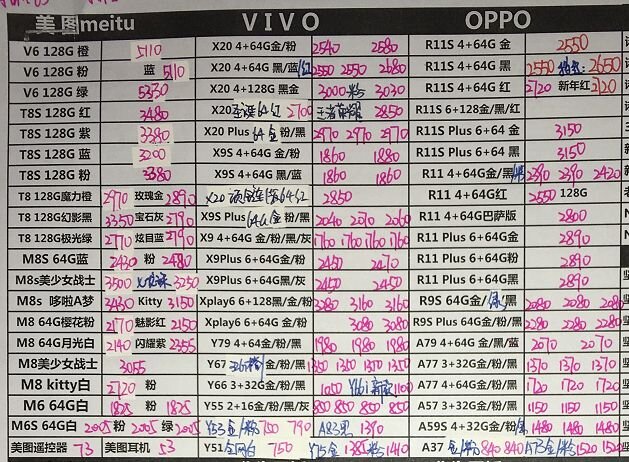 美图meitu VIVO OPPO
V6 128G 橙 5110 X20 4+64G金/粉 2540 2580 R11S 4+64G 金 2550
V6 128G 粉 蓝 5110 X20 4+64G 黑/蓝/红 2550 2550 2680 R11S 4+64G 黑 2550 2650
V6 128G 绿 5330 X20 4+128G 黑金 3000 粉 3030 R11S 4+64G 红 2720 新年红 2720
T8S 128G 红 3480 X20 64红 2700 王者荣耀 2850 R11S 6+128G金/黑/红
T8S 128G 紫 3280 X20 Plus 64金 粉/黑 2970 2970 2970 R11S Plus 6+64 金 3150
T8S 128G 蓝 3200 X9S 4+64G 金/粉 1860 1880 R11S Plus 6+64 黑 3150
T8S 128G 粉 3380 X9S 4+64G 黑/红 1860 1860 R11 4+64G金/黑/粉 2390 2390 2420
T8 128G魔力橙 2970 玫瑰金 2890 X20 64红 2850 R11 4+64G红 2550 128G
T8 128G幻影黑 3350 宝石灰 2790 X9S Plus 64G金/粉/黑 2040 2070 2060 R11 4+64G巴萨版 2800
T8 128G极光绿 2770 炫目蓝 2790 X9 4+64G金/粉/黑/灰 1760 1760 1760 1760 R11 Plus 6+64G金 2890
M8S 64G蓝 2430 粉 2480 X9Plus 6+64G金/粉 2450 2470 R11 Plus 6+64G粉 2890
M8s美少女战士 3500 3250 X9Plus 6+64G黑/灰 2450 2450 R11 Plus 6+64G黑 2890
M8s 哆啦A梦 3430 Kitty 3150 Xplay6 6+128G金/粉/黑 3280 3160 3160 R9S 64G金/粉/黑 2080 2080 2080
M8 64G樱花粉 2170 魅影红 2150 Xplay6 6+64G 金/粉 3080 3080 R9S Plus 64G金/粉/黑 2280 2280 2280
M8 64G月光白 2140 闪耀紫 2355 Y79 4+64G 金/粉/黑 1980 1980 1980 A79 4+64G 金/黑/蓝 2070 2070
M8美少女战士 3055 Y67 金/粉/黑/灰 1350 1350 1350 1350 A77 3+32G金/粉/黑 1370 1370 1370
M8 kitty白 2720 粉 Y66 3+32G金/粉/黑 1050 1100 A77 4+64G金/粉/黑 1720 1720 1720
M6 64G白 1825 粉 1825 Y55 2+16金/粉/黑/灰 850 850 850 850 A59S 4+32G金/粉/黑 1520 1520 1520
M6S 64G白 2005 粉 2005 绿 2005 Y53 金/粉 750 790 A83黑 1390 A59S 4+32G金/粉/金 1480 1480 1480
美图遥控器 73 美图耳机 53 Y51 全网白 750 Y75 金 1385 粉 1410 A37 金/粉 840 840 A73 金/粉 1520 1520